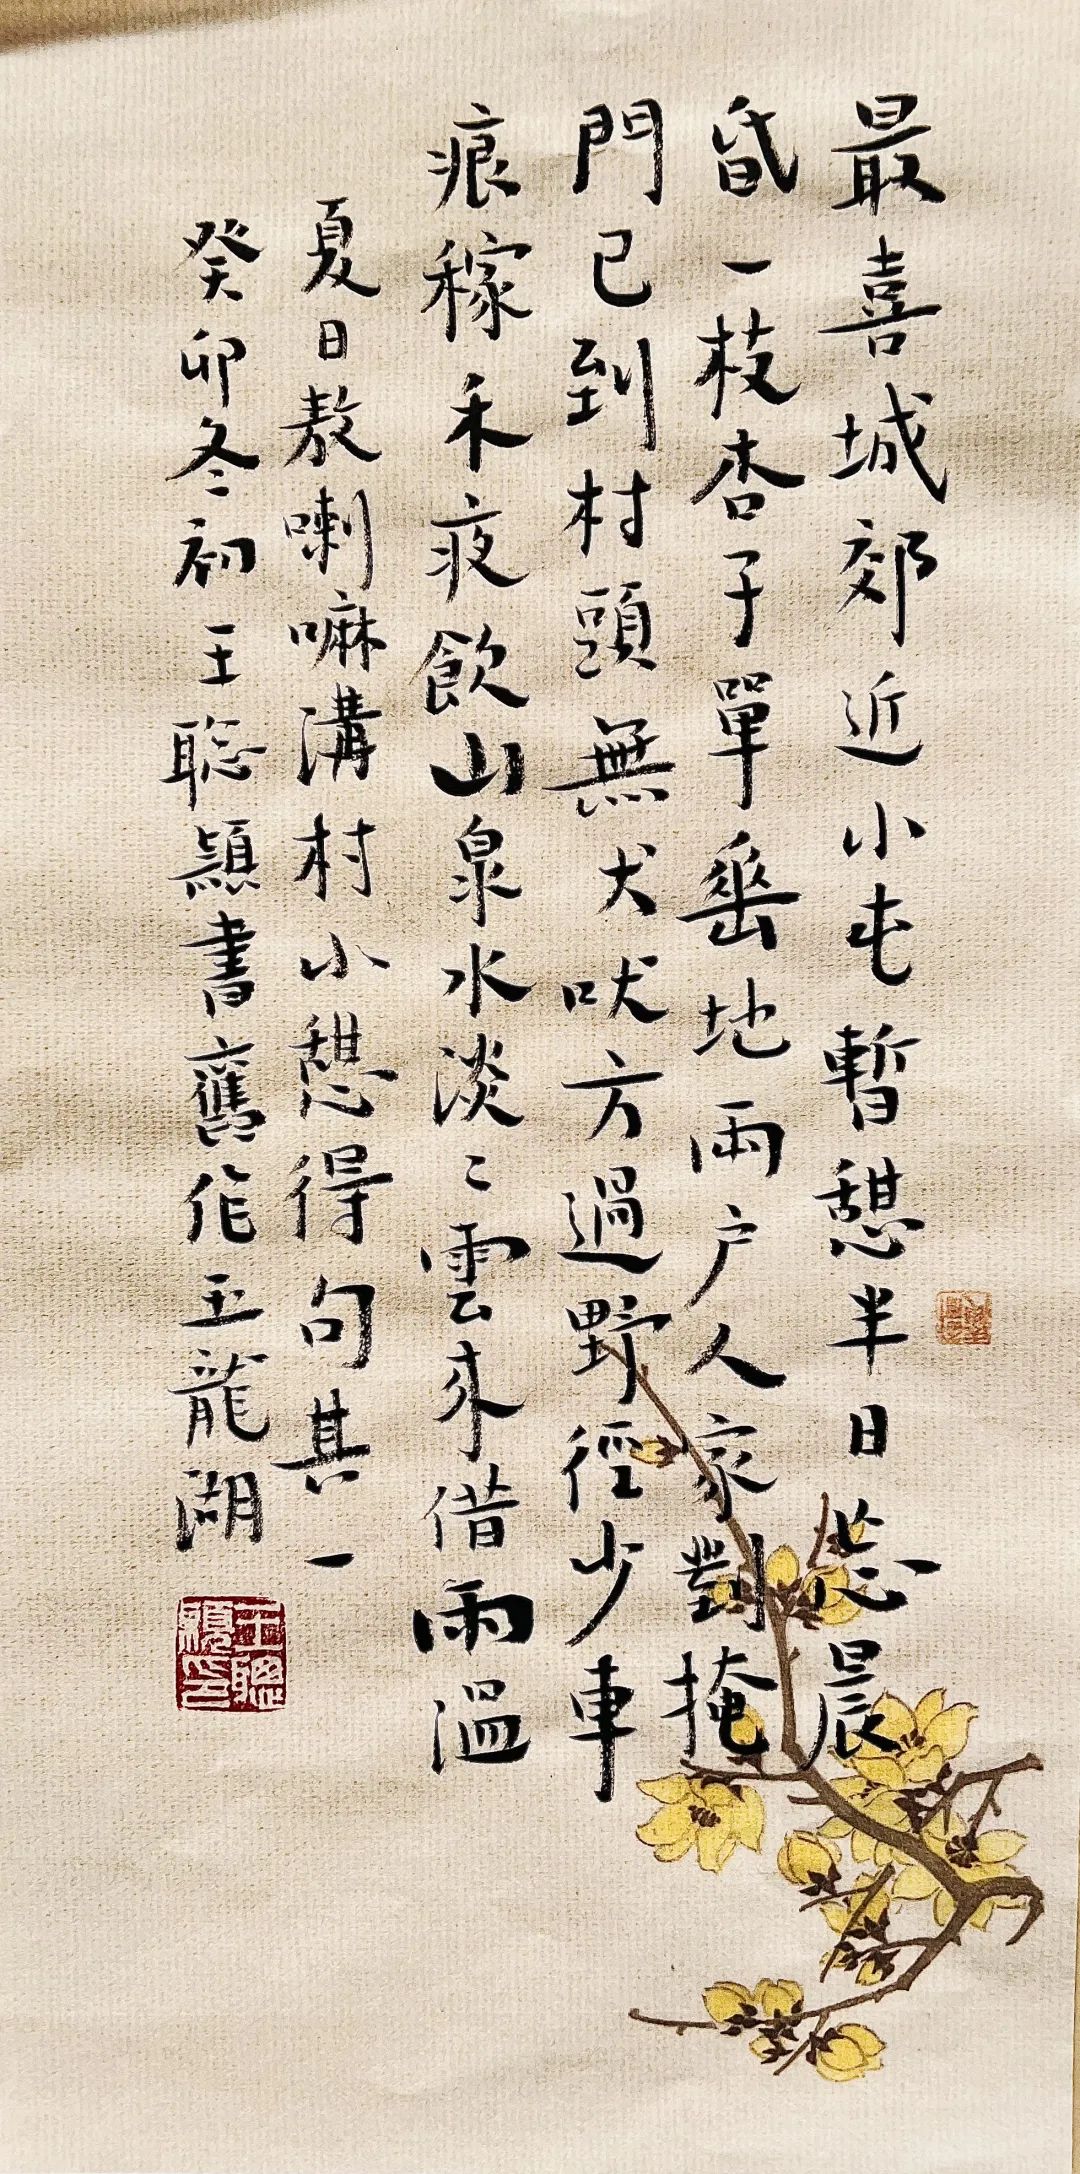 最喜城郊近小屯暫憩半日忘晨
昏一枝杏子單垂地兩户人家對掩
門已到村頭無犬吠方過野徑少車
痕稼禾夜飲山泉水淡〻雲來借雨温
夏日敖喇嘛溝村小憩得句其一
癸卯冬初王聪顯書舊作玉龍湖